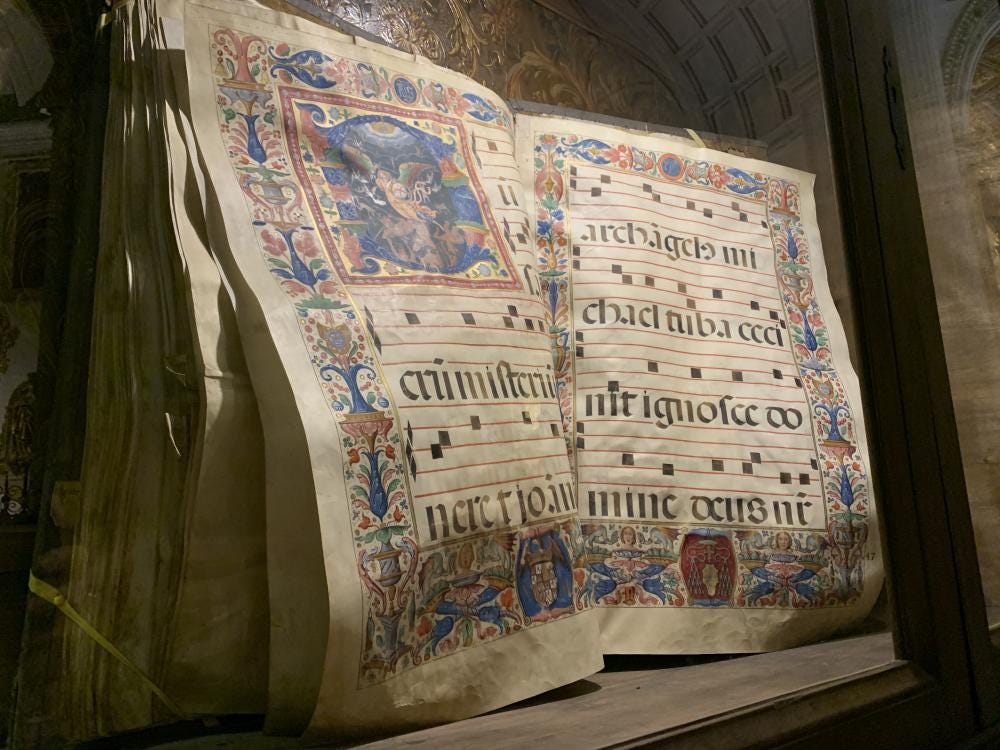 crū misteriū
neret joan
archāgelꝰ mi
chael tuba ceci
nit ignosce do
mine deus nr̄